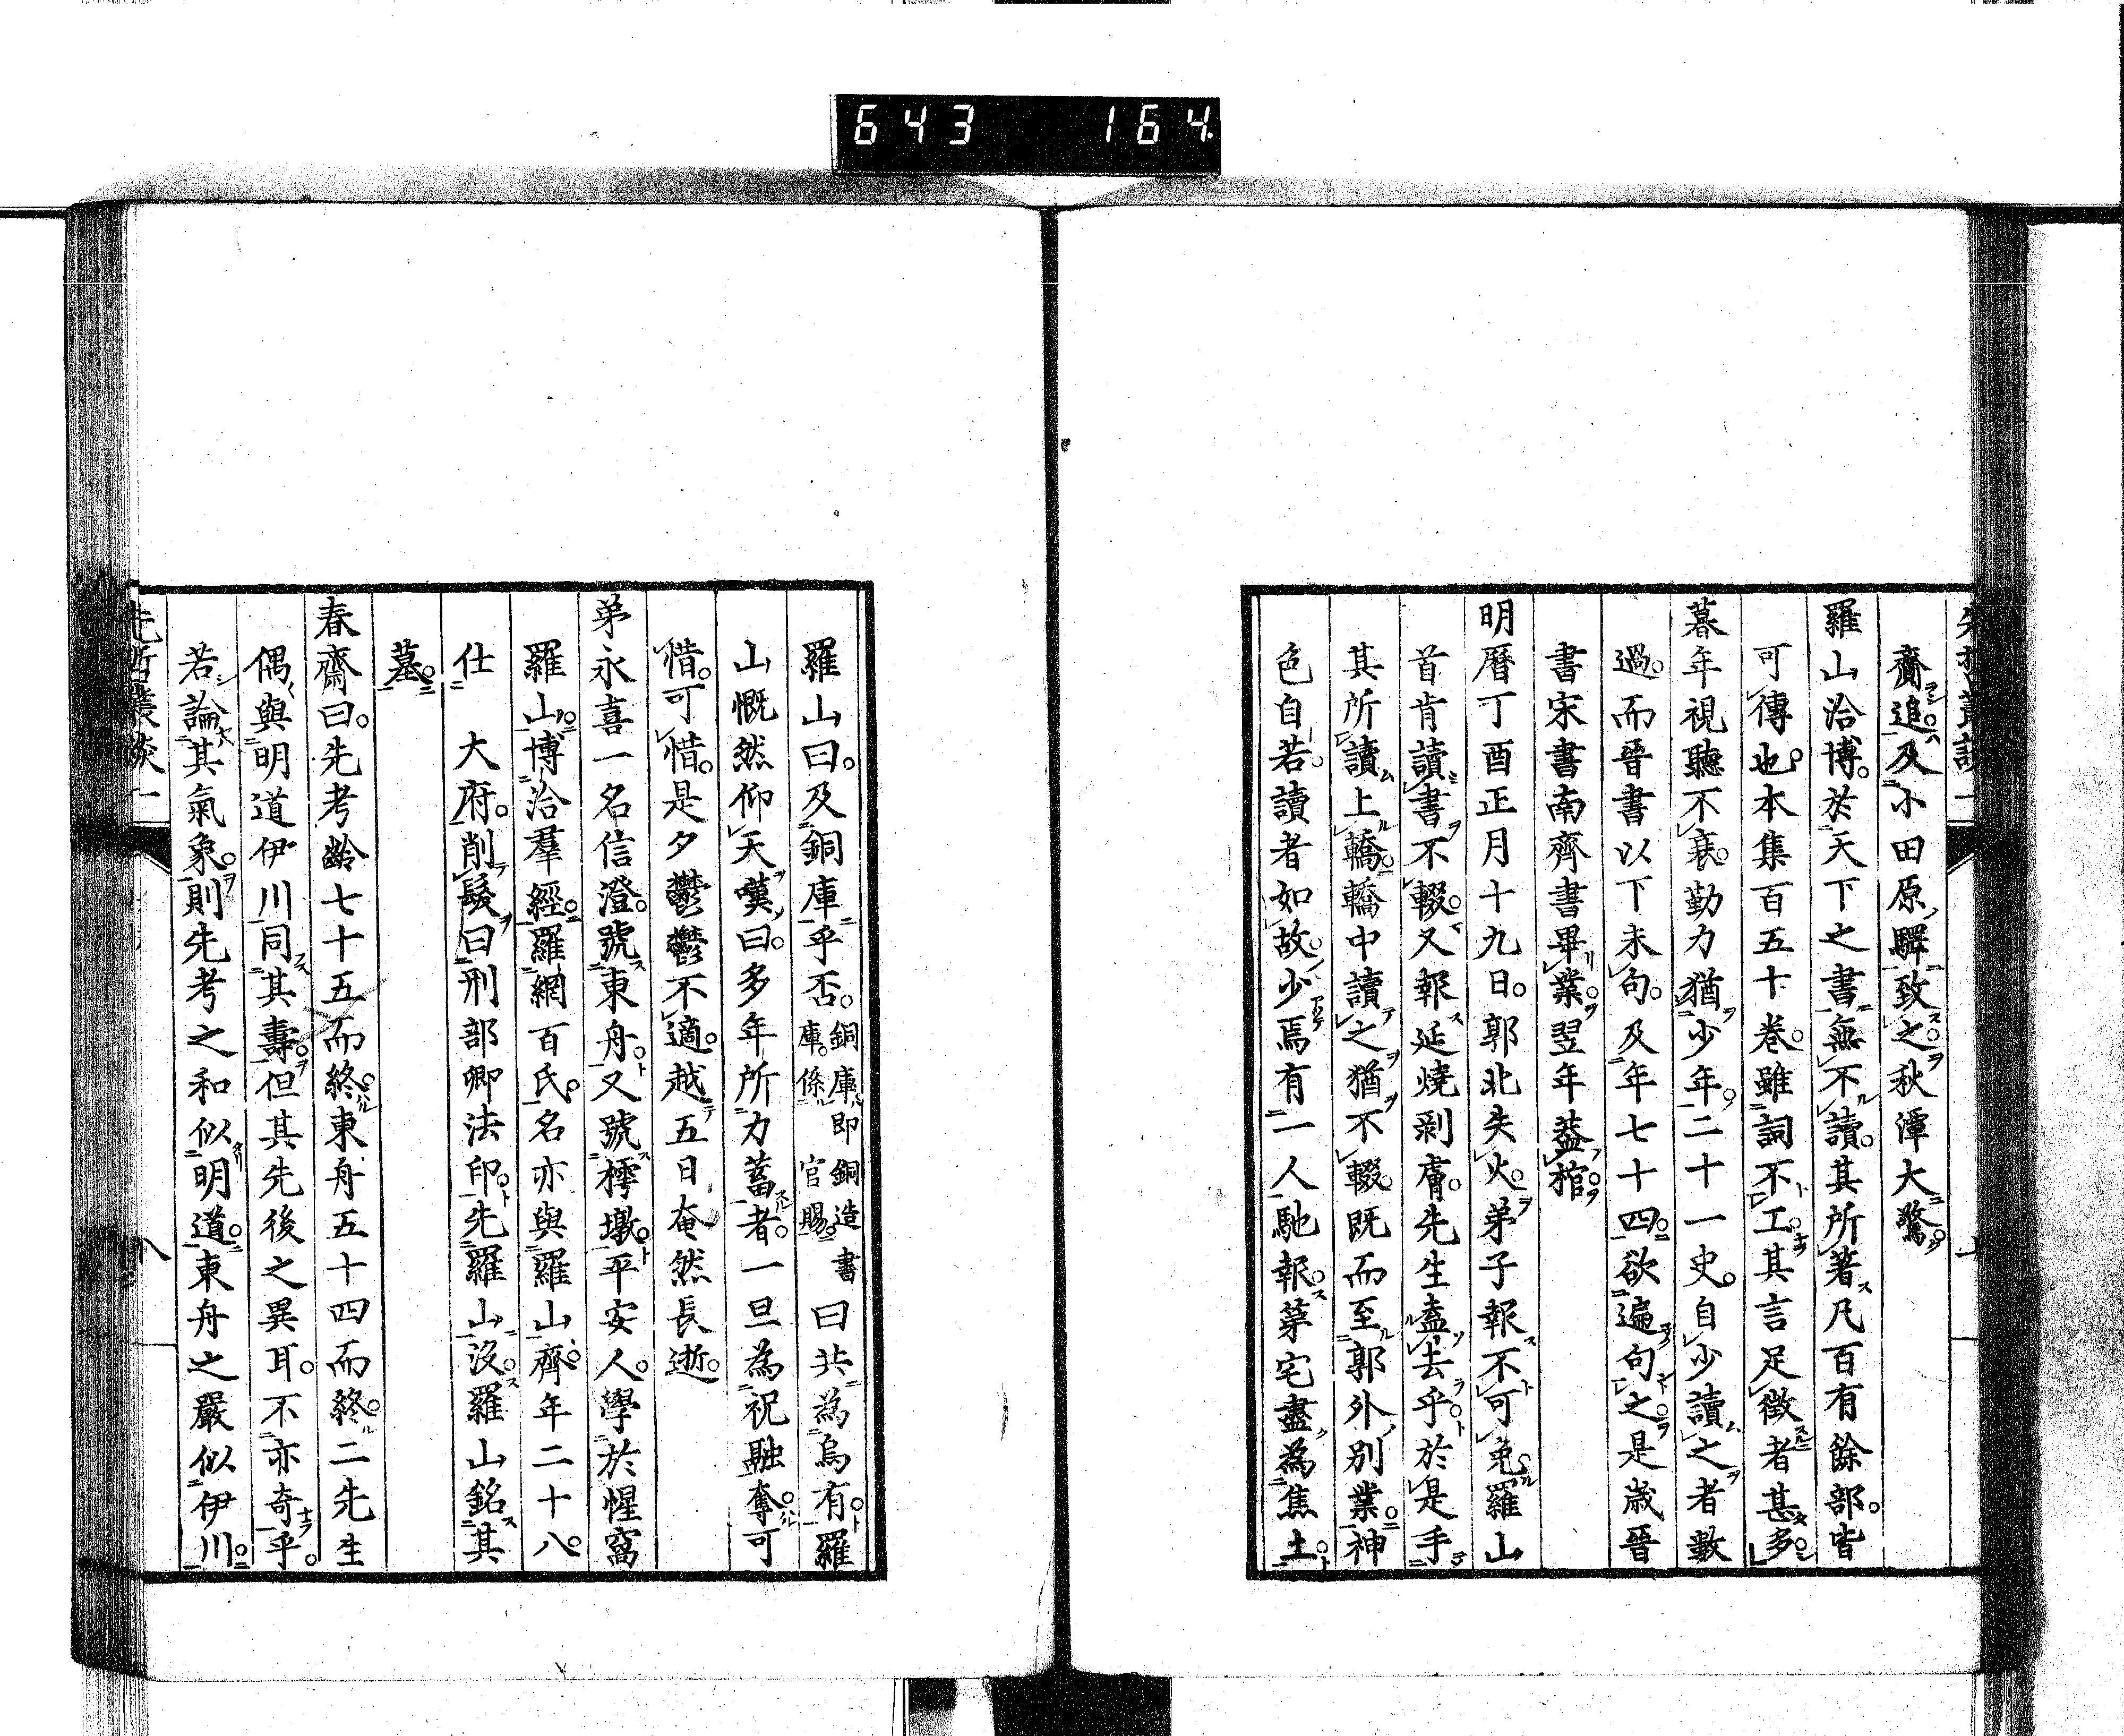 643 164
齎追及小田原驛致之秋潭大驚
羅山洽博於天下之書無不讀其所著凡百有餘部皆
可傳也本集百五十卷雖詞不工其言足徴者甚多
暮年視聽不衰勤力猶少年二十一史自少讀之者數
過而晉書以下未句及年七十四欲遍句之是歲晉
書宋書南齊書畢業翌年蓋棺
明曆丁酉正月十九日郭北失火弟子報不可免羅山
首肯讀書不輟又報延燒剥膚先生盍去乎於是手
其所讀上轎轎中讀之猶不輟既而至郭外別業神
色自若讀者如故少焉有一人馳報第宅盡為焦土
羅山曰及銅庫乎否銅庫即銅造書庫係官賜曰共為烏有羅
山慨然仰天嘆曰多年所力蓄者一旦為祝融奪可
惜可惜是夕鬱鬱不適越五日奄然長逝
弟永喜一名信澄號東舟又號樗墩平安人學於惺窩
羅山博洽羣經羅網百氏名亦與羅山齊年二十八
仕 大府削髮曰刑部卿法印先羅山沒羅山銘其
墓
春齋曰先考齡七十五而終東舟五十四而終二先生
偶與明道伊川同其壽但其先後之異耳不亦奇乎
若論其氣象則先考之和似明道東舟之嚴似伊川
先哲叢談 一
八